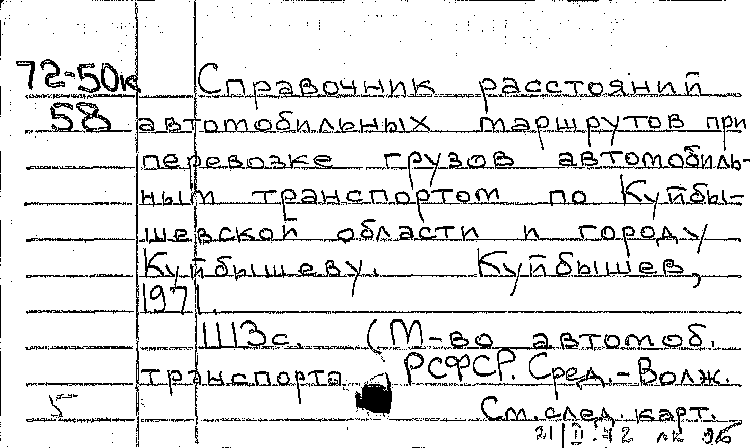 72-50к Справочник расстояний
58 автомобильных маршрутов при
перевозке грузов автомобиль-
ным транспортом по Куйбы-
шевской области и городу
Куйбышеву. Куйбышев,
1971.
1113с. (М-во автомоб.
транспорта РСФСР. Сред.-Волж.
См. след. карт.
21/II-72